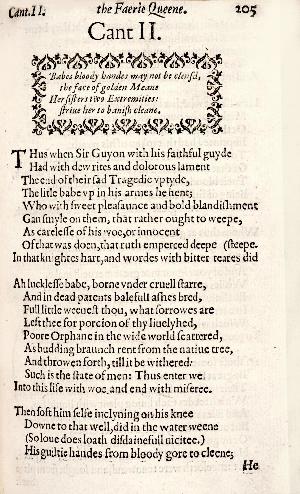 Cant.II. the Faerie Queene. 205
Cant II.
Babes bloody handes may not be clensd,
the face of golden Meane
Her sisters two Extremities:
striue her to banish cleane.
THus when Sir Guyon with his faithful guyde
Had with dew rites and dolorous lament
The end of their sad Tragedie vptyde,
The litle babe vp in his armes he hent;
Who with sweet pleasaunce and bold blandishment
Gan smyle on them, that rather ought to weepe,
As carelesse of his woe, or innocent
Of that was doen, that ruth emperced deepe (steepe.
In that knightes hart, and wordes with bitter teares did
Ah lucklesse babe, borne vnder cruell starre,
And in dead parents balefull ashes bred,
Full litle weenest thou, what sorrowes are
Left thee for porcion of thy liuelyhed,
Poore Orphane in the wide world scattered,
As budding braunch rent from the natiue tree,
And throwen forth, till it be withered:
Such is the state of men: Thus enter we
Into this life with woe, and end with miseree.
Then soft him selfe inclyning on his knee
Downe to that well, did in the water weene
(So loue does loath disdainefull nicitee.)
His guiltie handes from bloody gore to cleene;
He